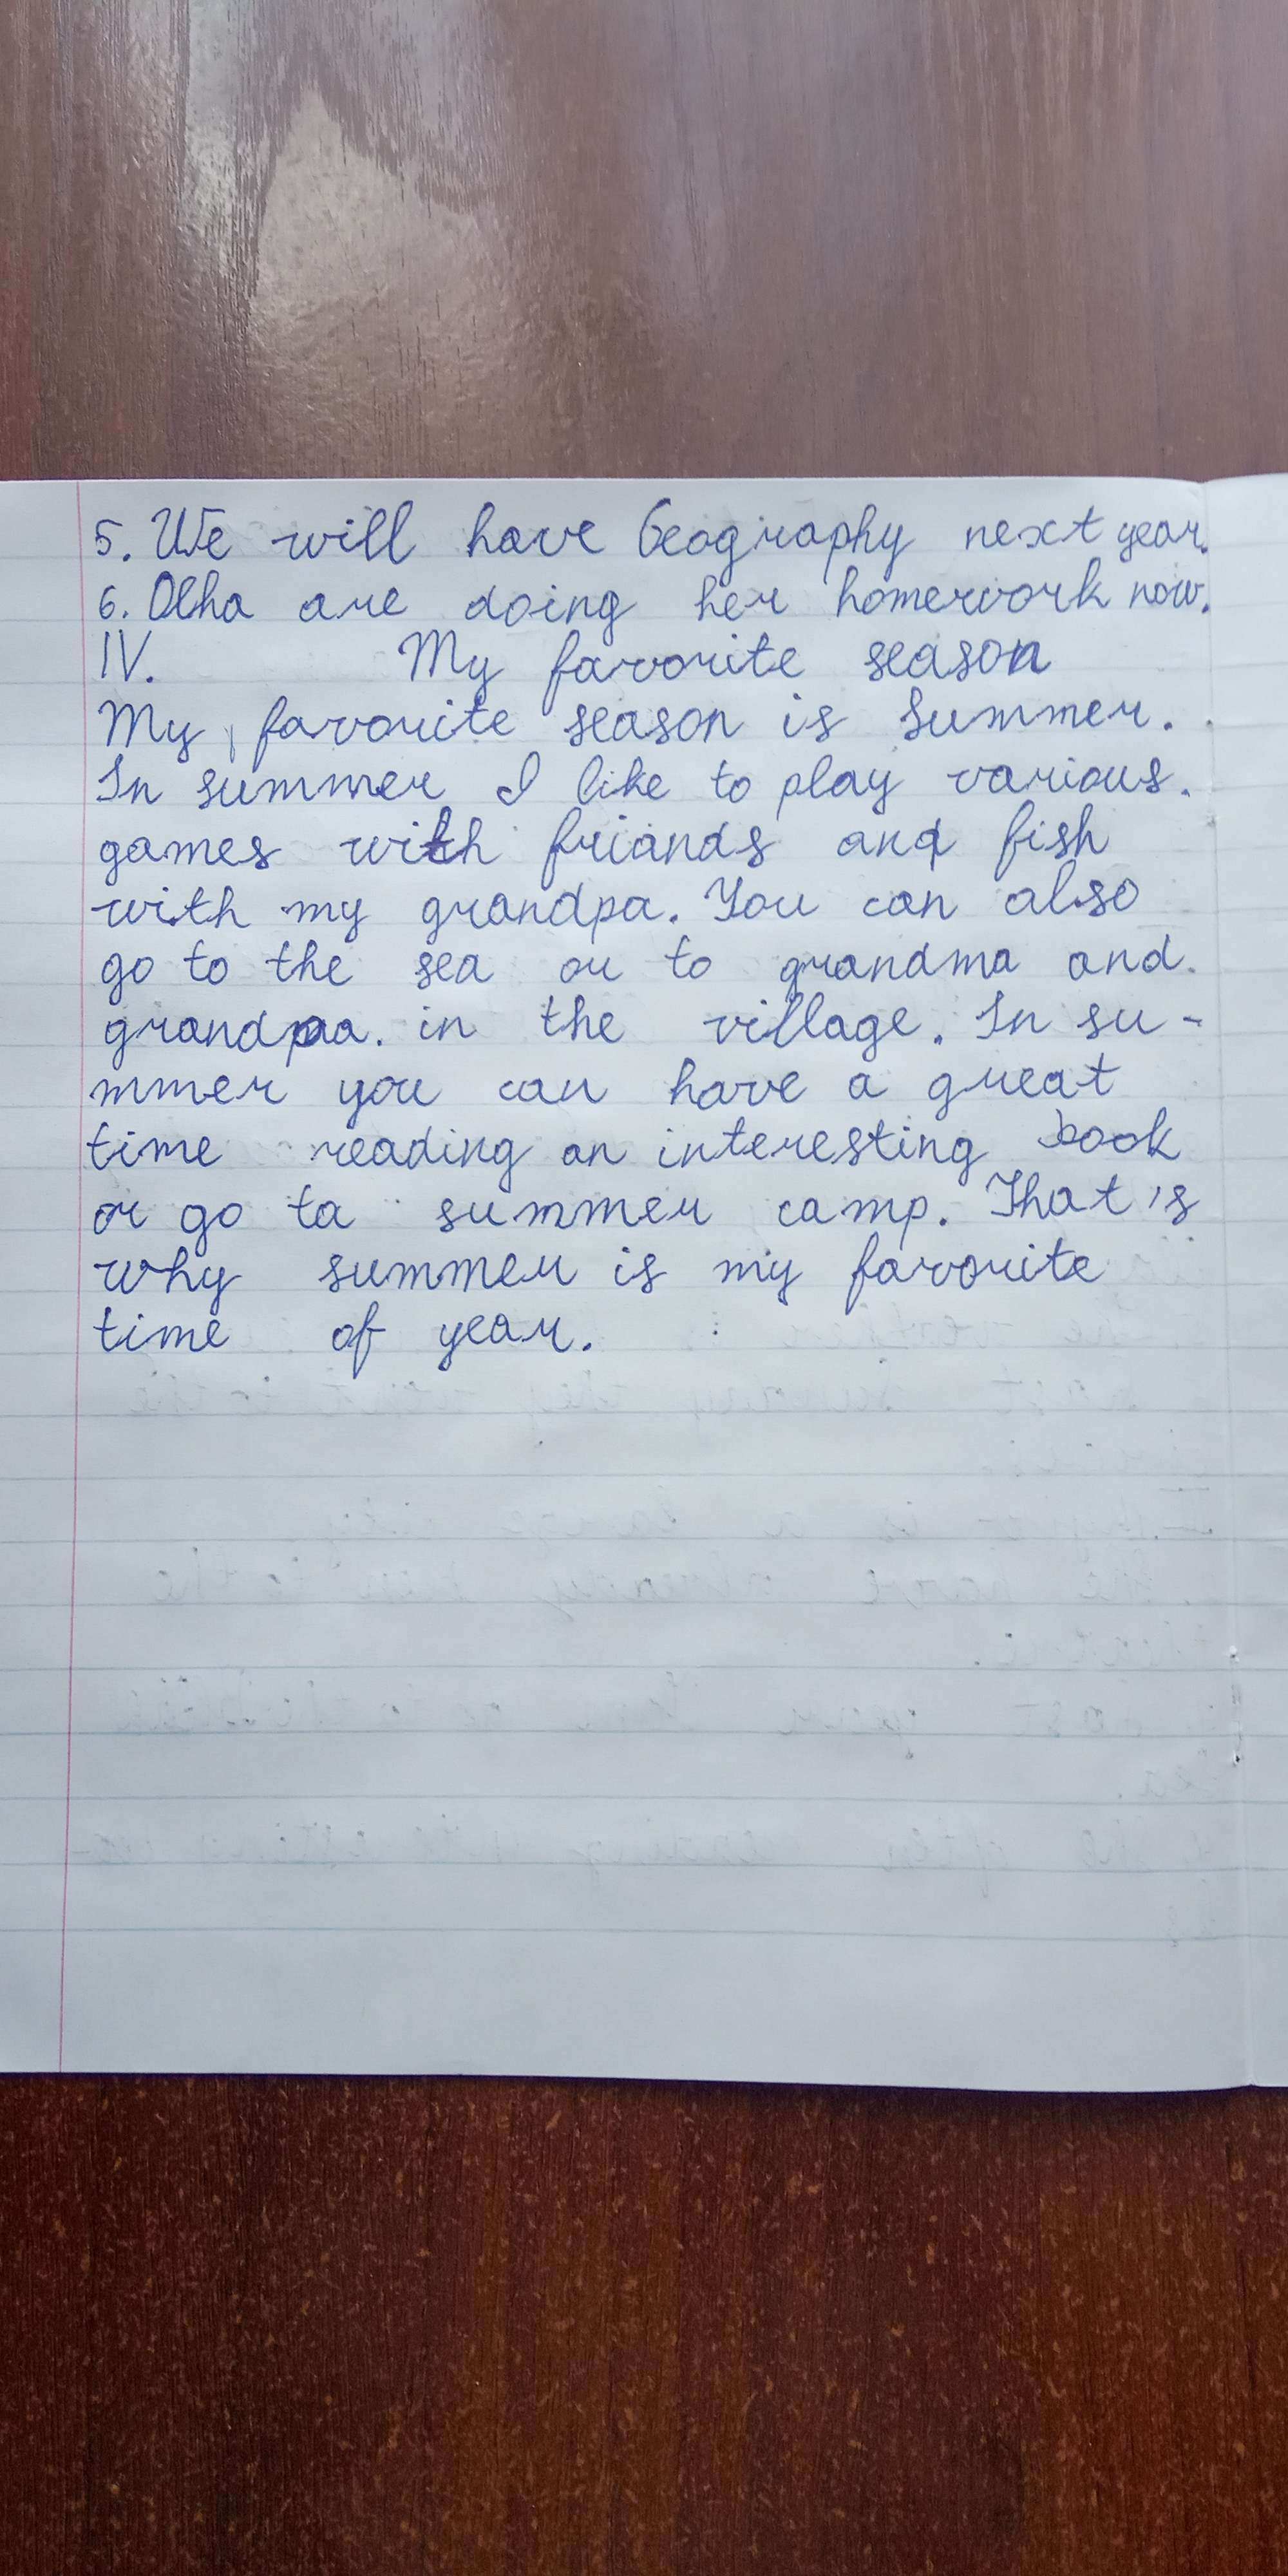 5. We will have Geography next year.
6. Olha are doing her homework now.
IV. My favorite season
My favorite season is summer.
In summer I like to play various.
games with friands and fish
with my grandpa. You can also
go to the sea or to grandma and.
grandpaa. in the village. In su-
mmer you can have a great
time reading an interesting book
or go ta summer camp. That is
why summer is my favorite
time of year.